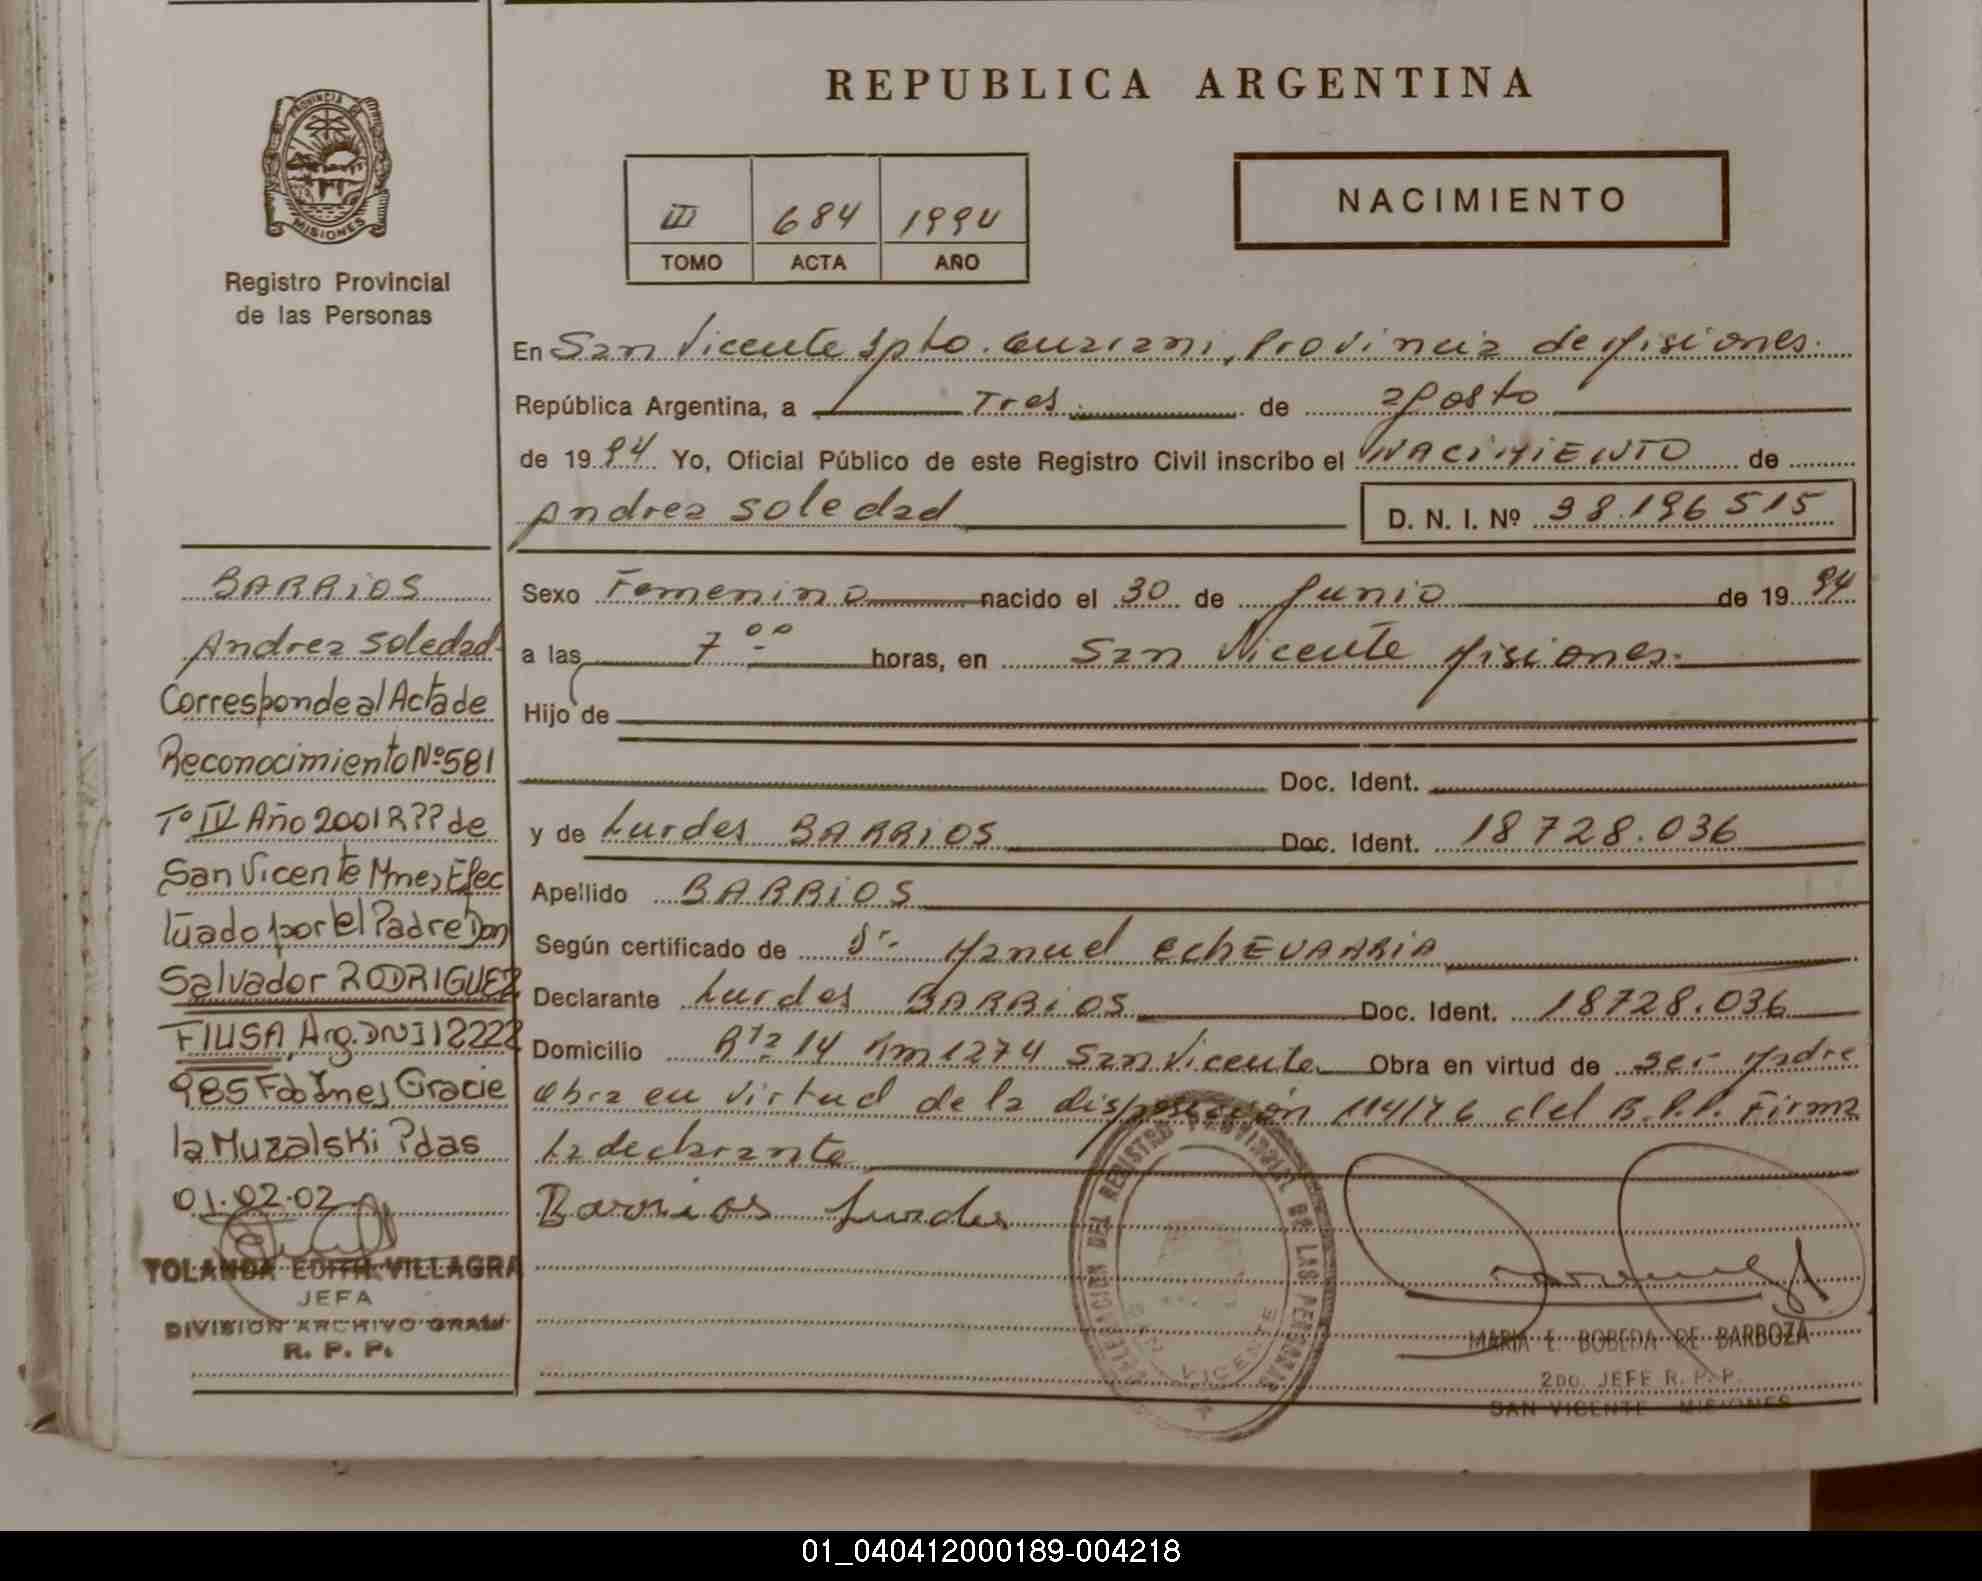 REPUBLICA ARGENTINA
PROVINCIA DE
MISIONES
Registro Provincial
de las Personas
III 684 1994
TOMO ACTA AÑO
NACIMIENTO
En San Vicente Dpto. Guarani, Provincia de Misiones.
República Argentina, a Tres de agosto
de 1994 Yo, Oficial Público de este Registro Civil inscribo el NACIMIENTO de
Andrea Soledad D. N. I. Nº 38.196515
Sexo Femenino nacido el 30 de Junio de 1994
a las 7 00 horas, en San Vicente Misiones.
Hijo de
Doc. Ident.
y de Lurdes BARRIOS Doc. Ident. 18728.036
Apellido BARRIOS
Según certificado de Dr. Manuel EchEVARRIA
Declarante Lurdes BARRIOS Doc. Ident. 18728.036
Domicilio Rta 14 Km1274 San Vicente Obra en virtud de ser Madre
Obra en virtud de la disposición 114/76 del R.P.P. Firma
La declarante
Barrios Lurdes
BARRIOS
Andrea Soledad
Corresponde al Acta de
Reconocimiento Nº581
Tº IV Año 2001 R?? de
San Vicente Mnes Efec
tuado por el Padre Don
Salvador RODRIGUEZ
FIUSA, Arg. DNI 12222
985 Fdo Ines Gracie
la Muzalski Pdas
01.02.02
YOLANDA EDITH VILLAGRA
JEFA
DIVISION ARCHIVO GRAL
R. P. P.
DELEGACION DEL REGISTRO PROVINCIAL DE LAS PERSONAS
SAN VICENTE
MARIA E. BOBEDA DE BARBOZA
2DO. JEFE R. P. P.
SAN VICENTE - MISIONES
01_040412000189-004218